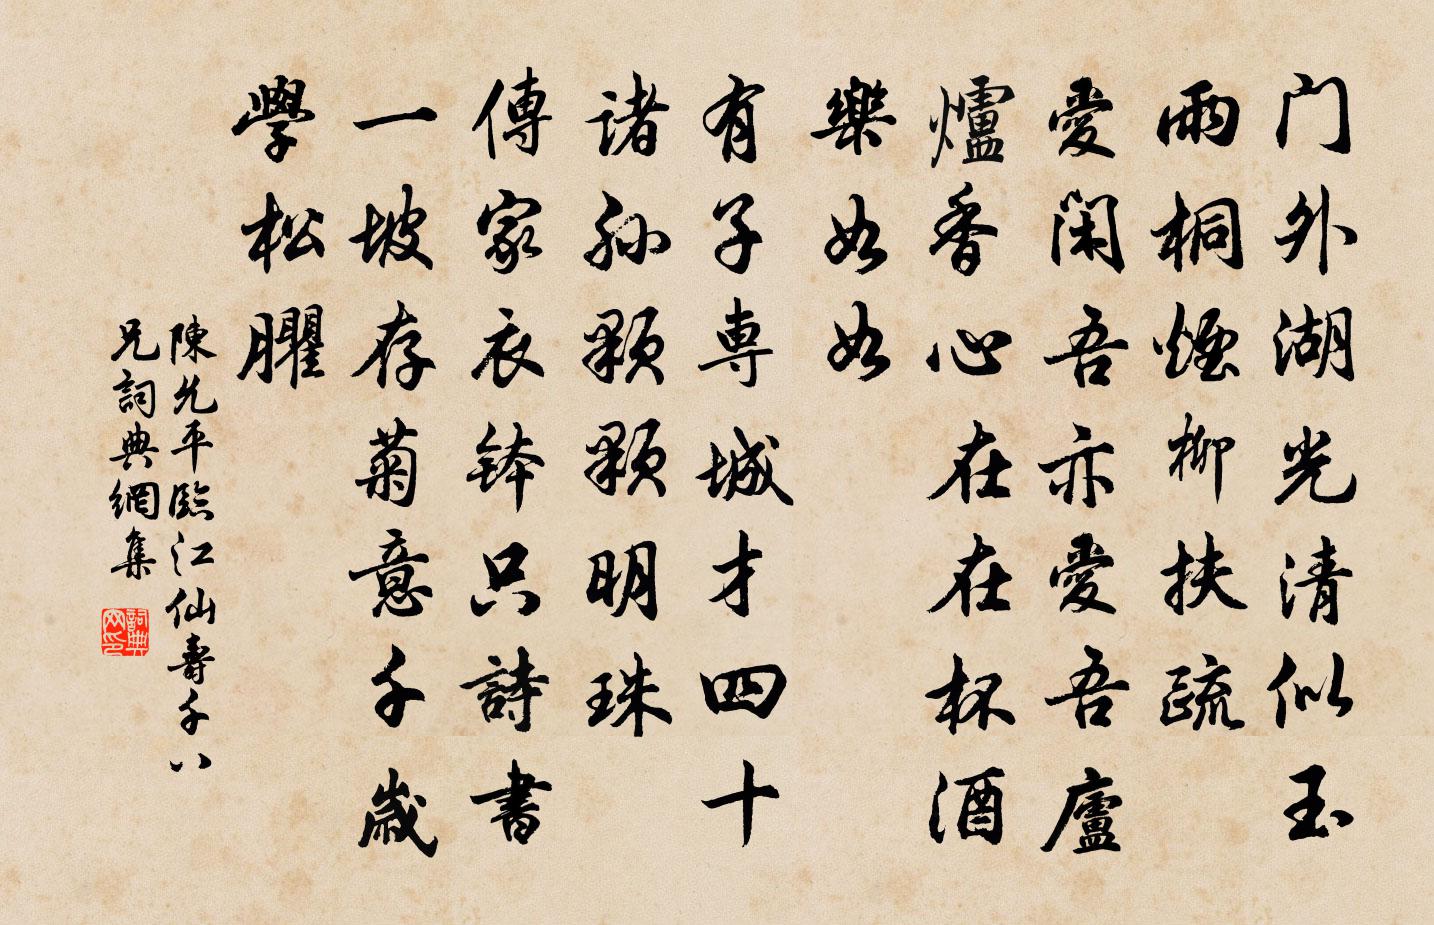 门外湖光清似玉
雨桐煙柳扶疏
愛閑吾亦愛吾廬
爐香心在在杯酒
樂如如
有子専城才四十
諸孫顆顆明珠
傳家衣鉢只詩書
一坡存菊意千歲
學松臞
陳允平臨江仙壽千八
兄詞典網集
詞典